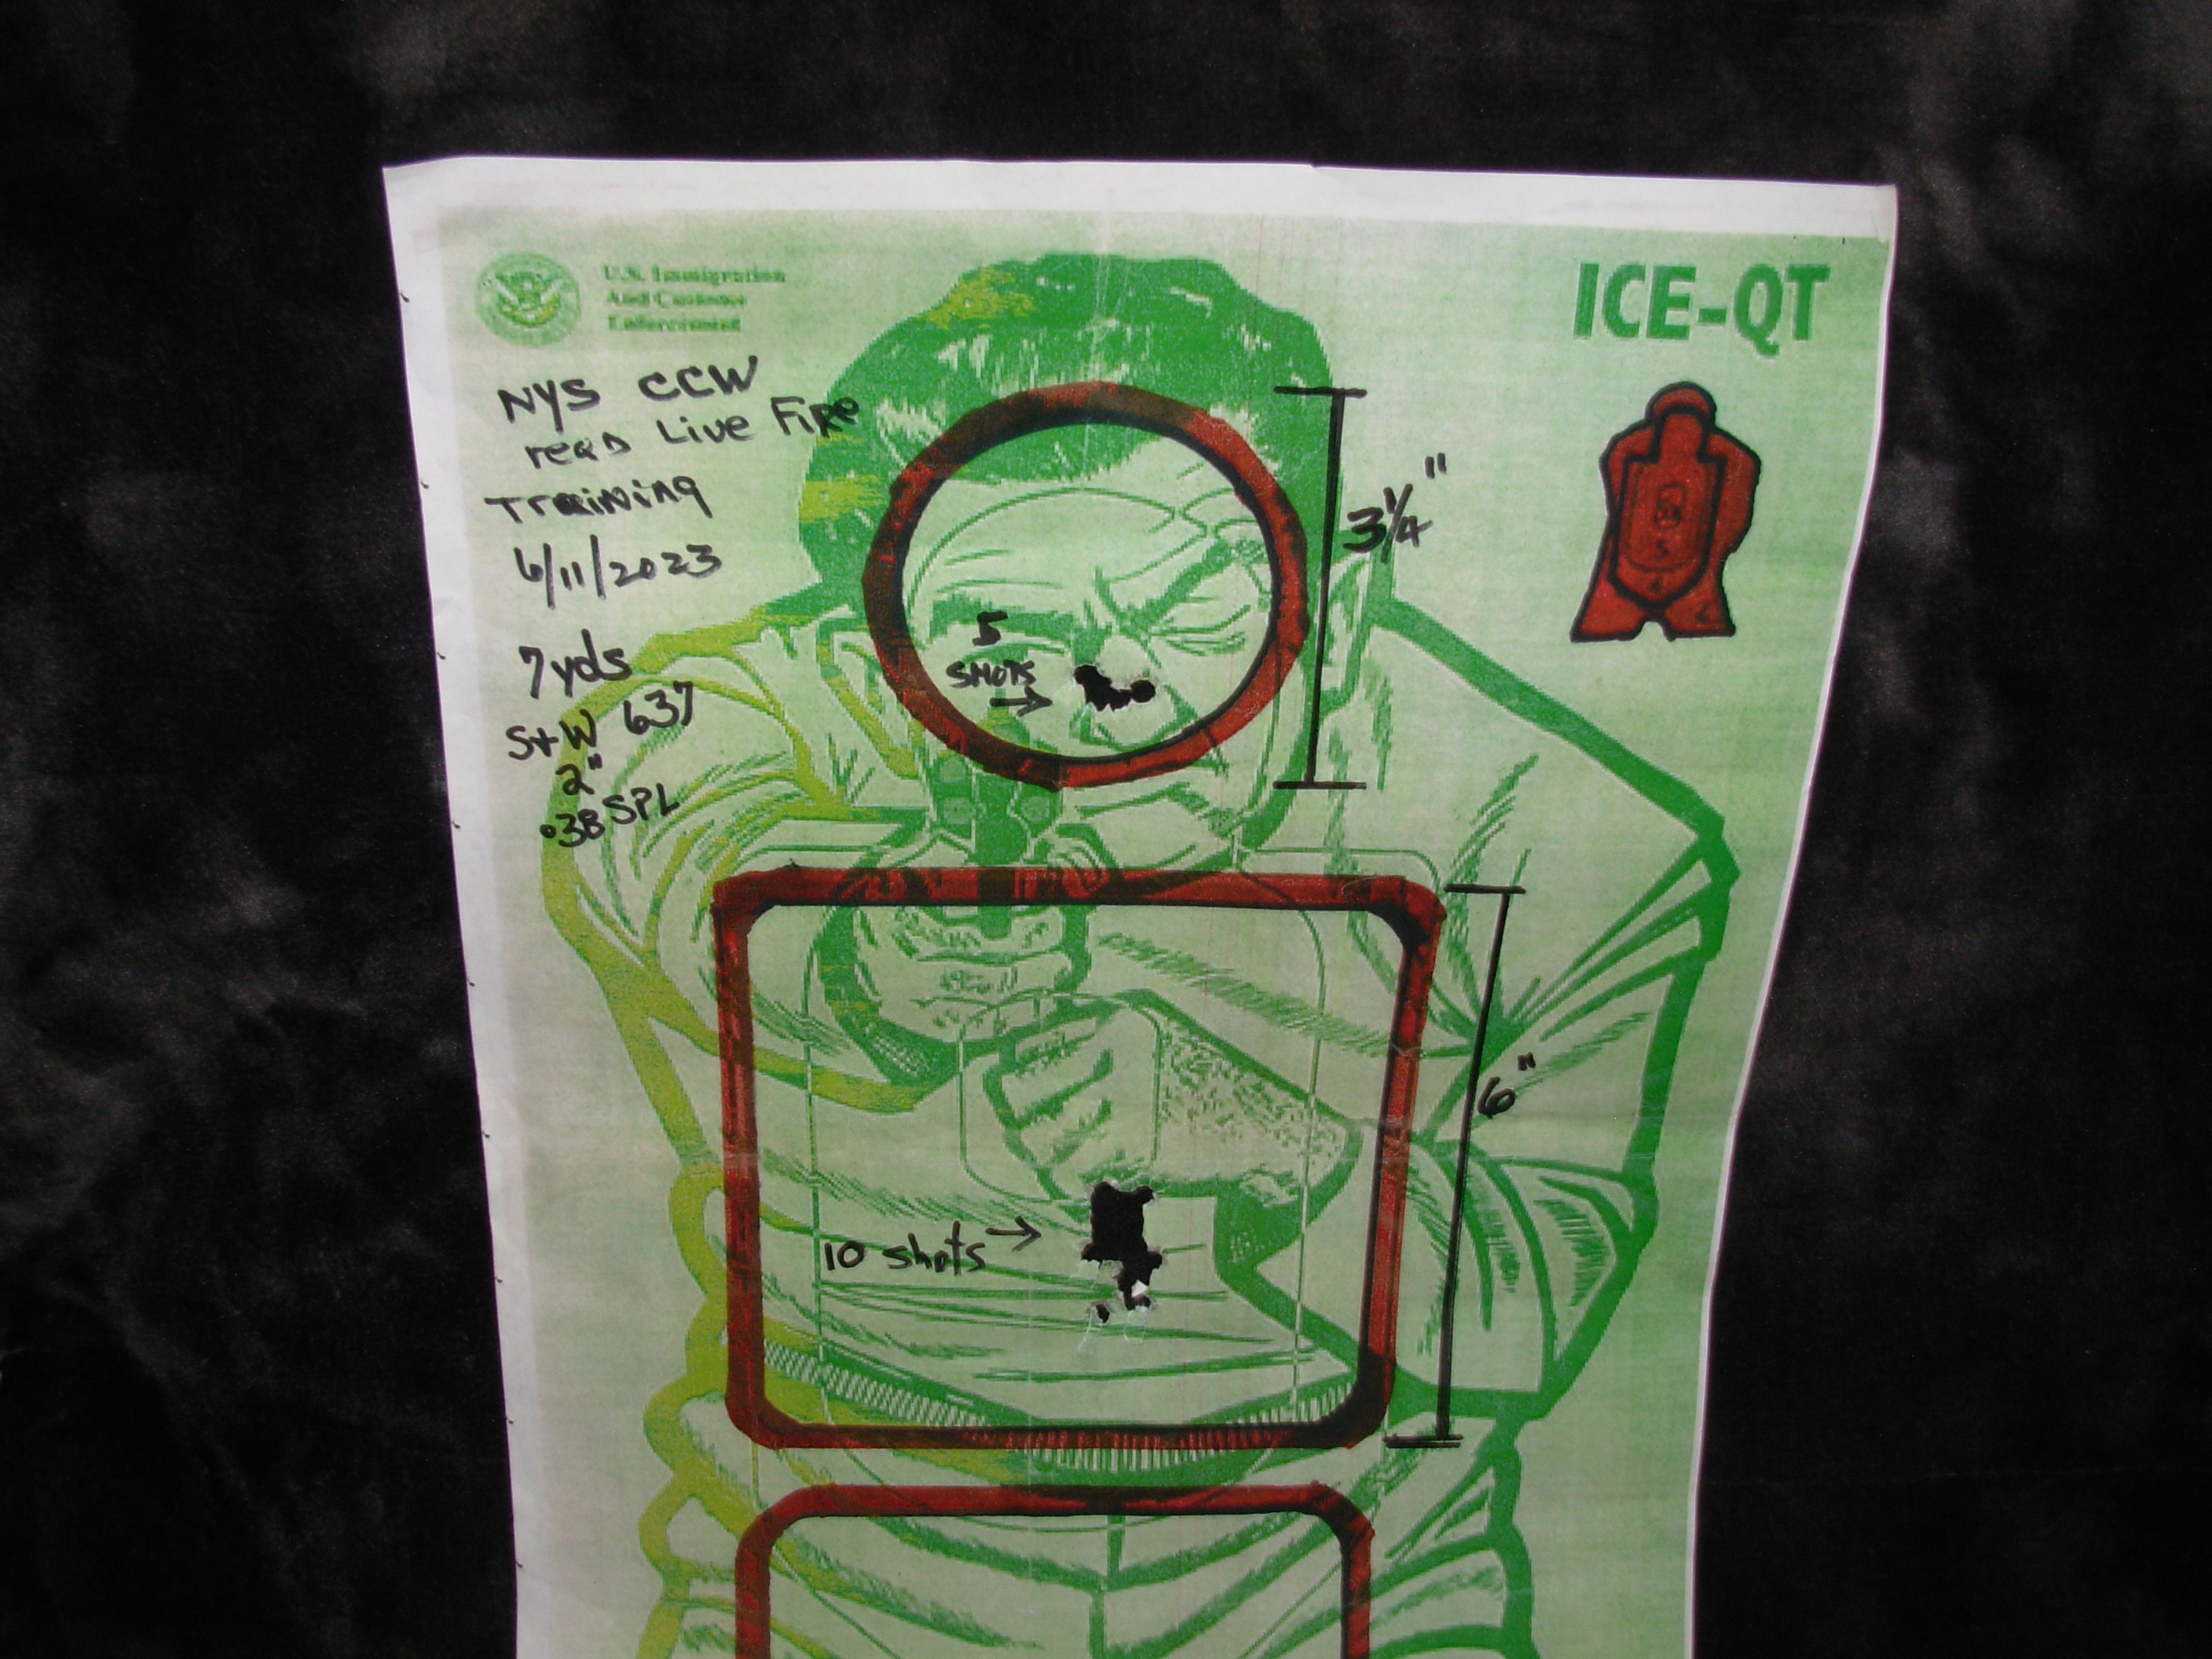 U.S. Immigration
And Customs
Enforcement
ICE-QT
NYS CCW
reqD Live Fire
Training
6/11/2023
7 yds
S+W 637
2"
.38 SPL
5
SHOTS →
3 1/4"
6"
10 shots →
5
4